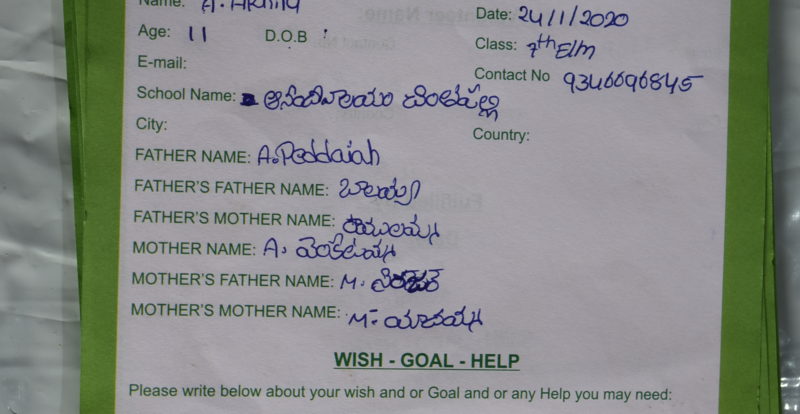 Name: A. Akhila
Date: 24/1/2020
Age: 11 D.O.B :
Class: 7th Elm
E-mail:
Contact No 9346696845
School Name: పల్లి
City:
Country:
FATHER NAME: A. Peddaiah
FATHER'S FATHER NAME: బాలయ్య
FATHER'S MOTHER NAME: రాములమ్మ
MOTHER NAME: A. వెంకటమ్మ
MOTHER'S FATHER NAME: M.
MOTHER'S MOTHER NAME: M. యాదమ్మ
WISH - GOAL - HELP
Please write below about your wish and or Goal and or any Help you may need: